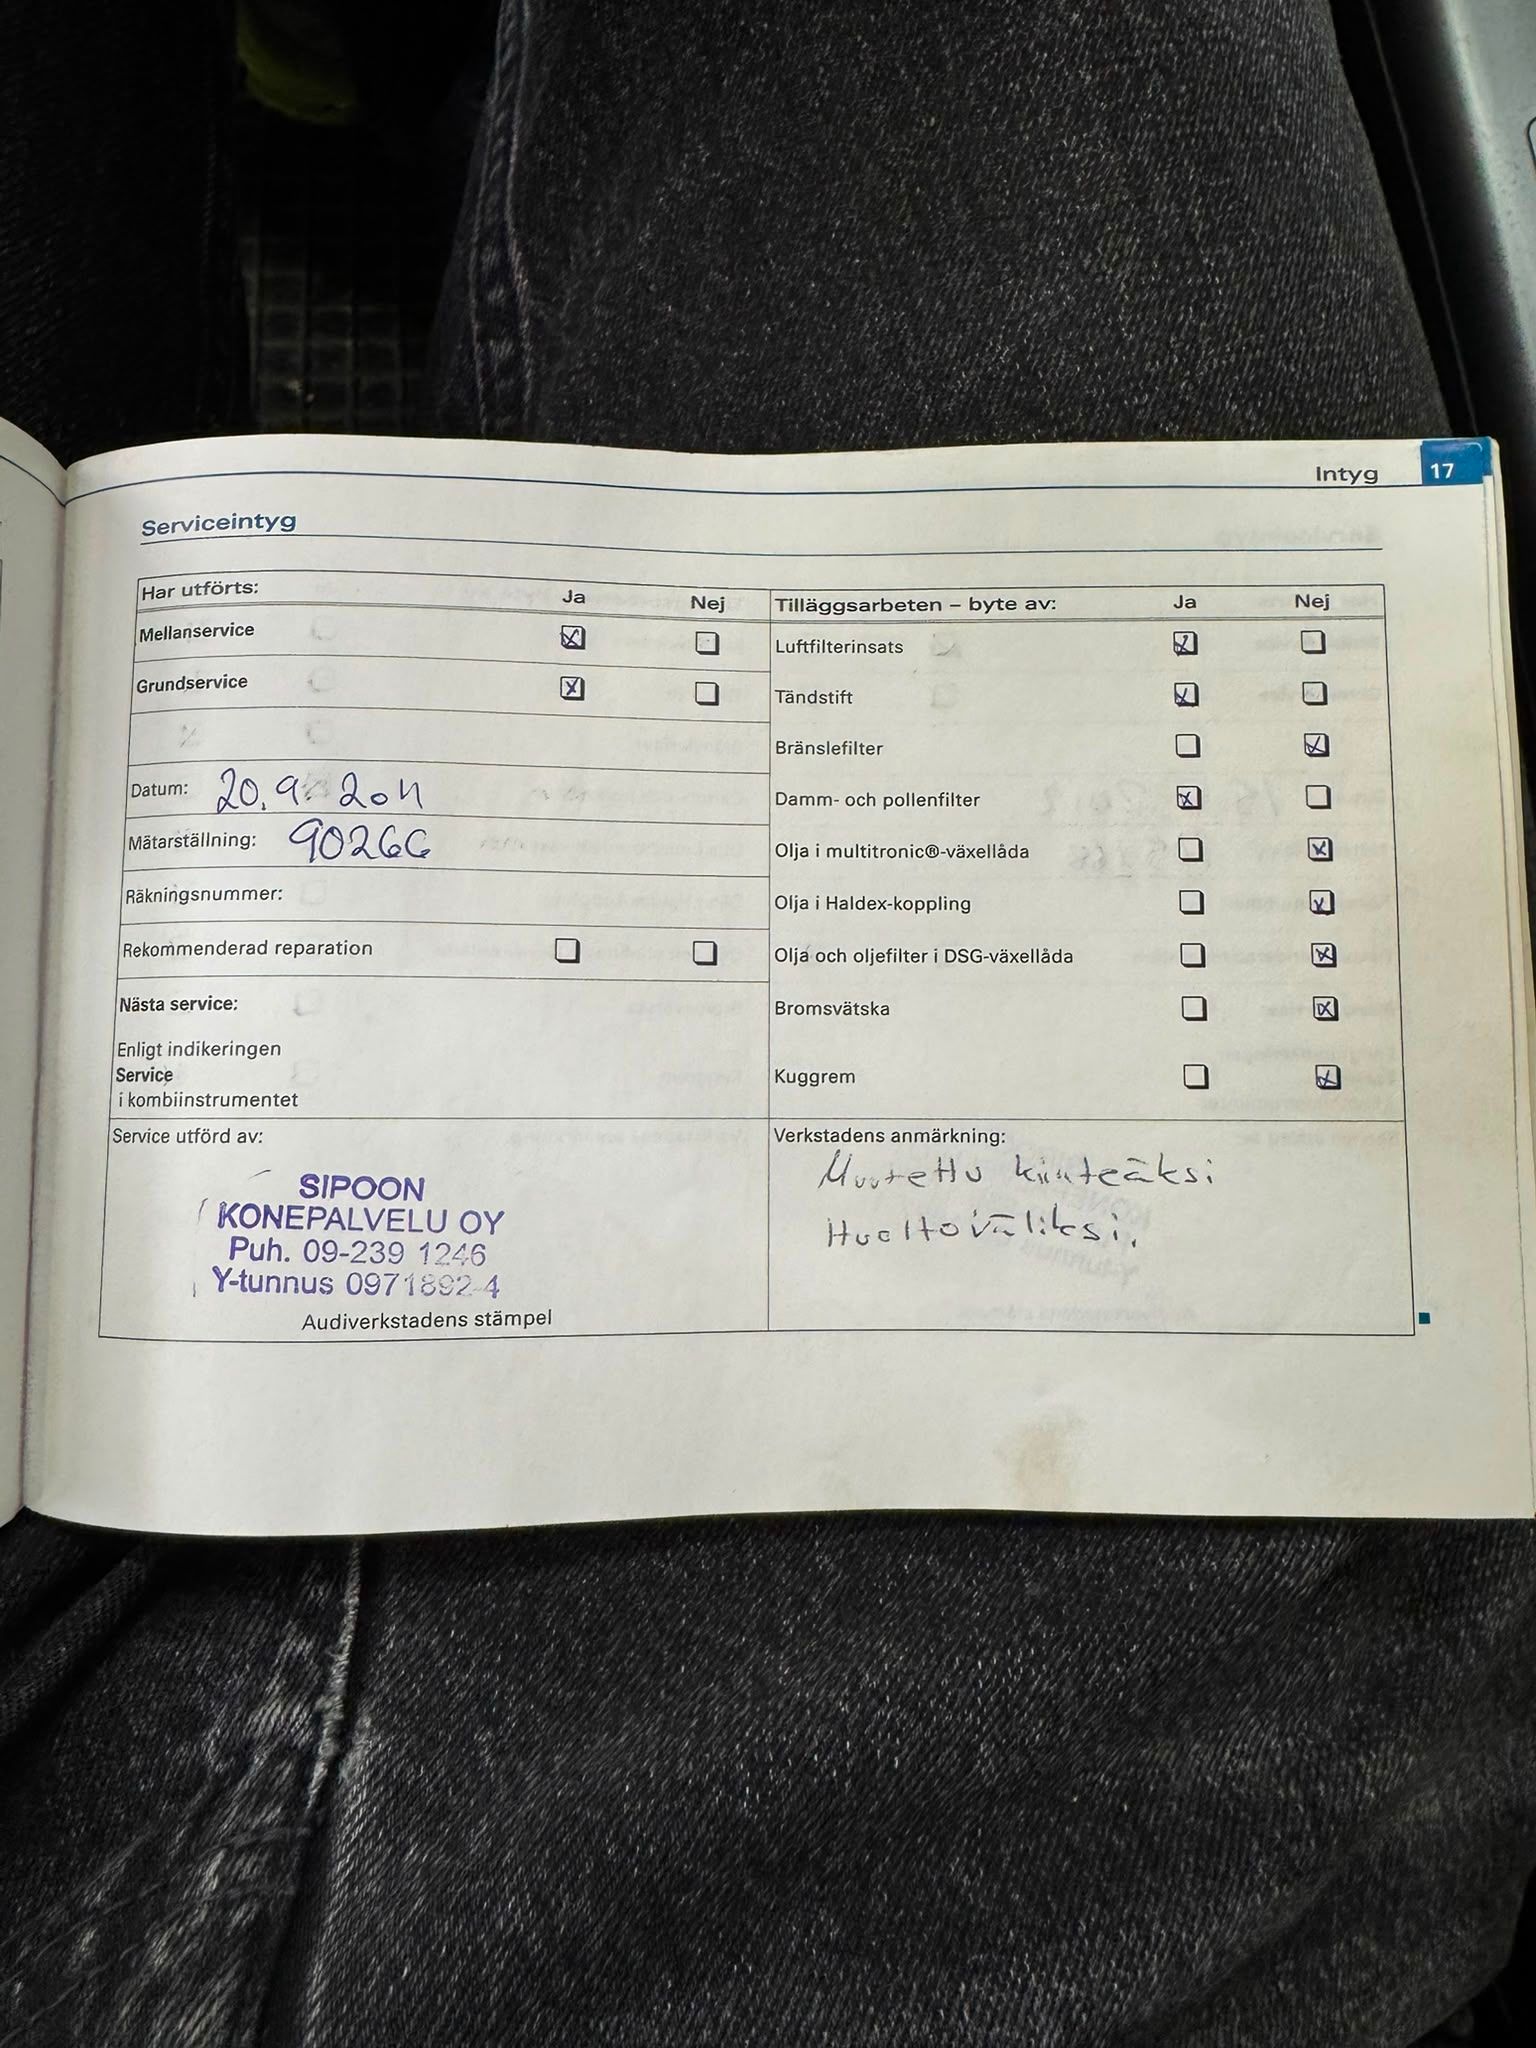 Intyg 17
Serviceintyg
Har utförts: Ja Nej
Mellanservice
Grundservice
Datum: 20.9. 2011
Mätarställning: 90266
Räkningsnummer:
Rekommenderad reparation
Nästa service:
Enligt indikeringen
Service
i kombiinstrumentet
Service utförd av:
SIPOON
KONEPALVELU OY
Puh. 09-239 1246
Y-tunnus 0971892-4
Audiverkstadens stämpel
Tilläggsarbeten – byte av: Ja Nej
Luftfilterinsats
Tändstift
Bränslefilter
Damm- och pollenfilter
Olja i multitronic®-växellåda
Olja i Haldex-koppling
Olja och oljefilter i DSG-växellåda
Bromsvätska
Kuggrem
Verkstadens anmärkning:
Muutettu kiinteäksi
Huoltoväliksi.